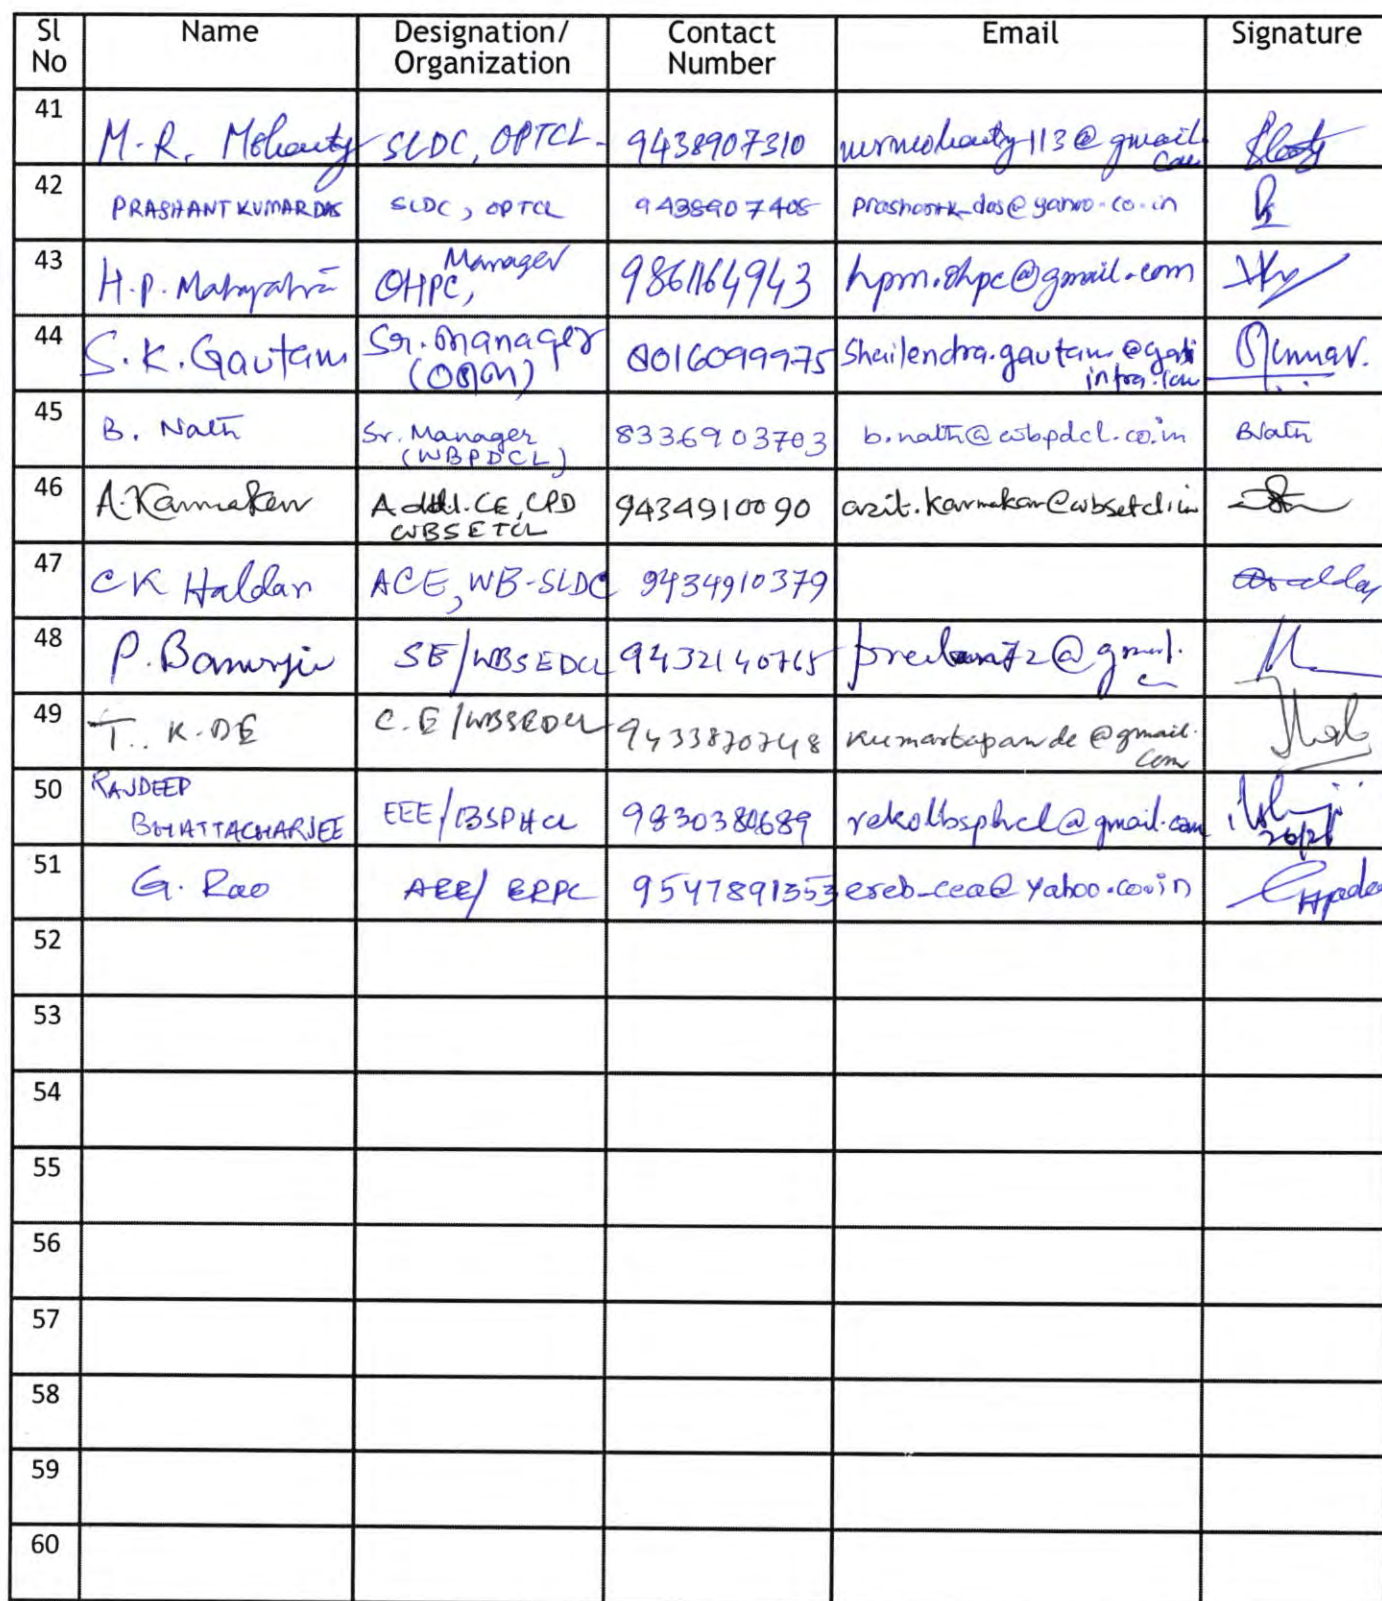 Sl No Name Designation/ Organization Contact Number Email Signature
41 M.R. Mohanty SLDC, OPTCL 9438907310 mrmohanty113@gmail.com
42 PRASHANT KUMAR DAS SLDC, OPTCL 9438907408 prashantk_das@yahoo.co.in
43 H.P. Mahapatra Manager OHPC, 9861164943 hpm.ohpc@gmail.com
44 S.K. Gautam Sr. Manager (O&M) 8016099975 Shailendra.gautam@gati infra.com
45 B. Nath Sr. Manager (WBPDCL) 8336903703 b.nath@wbpdcl.co.in BNath
46 A. Karmakar Addl. CE, CPD WBSETCL 9434910090 Karmakar@wbsetcl.in
47 CK Haldar ACE, WB-SLDC 9434910379
48 P. Banerjee SE/WBSEDCL 9432140765
49 T. K. DE C.E/WBSEDCL 9433870748 kumartapande@gmail.com
50 RAJDEEP BHATTACHARJEE EEE/BSPHCL 9830380689 rekolbsphcl@gmail.com
51 G. Rao AEE/ ERPC 9547891353 ereb_cea@yahoo.co.in
52
53
54
55
56
57
58
59
60